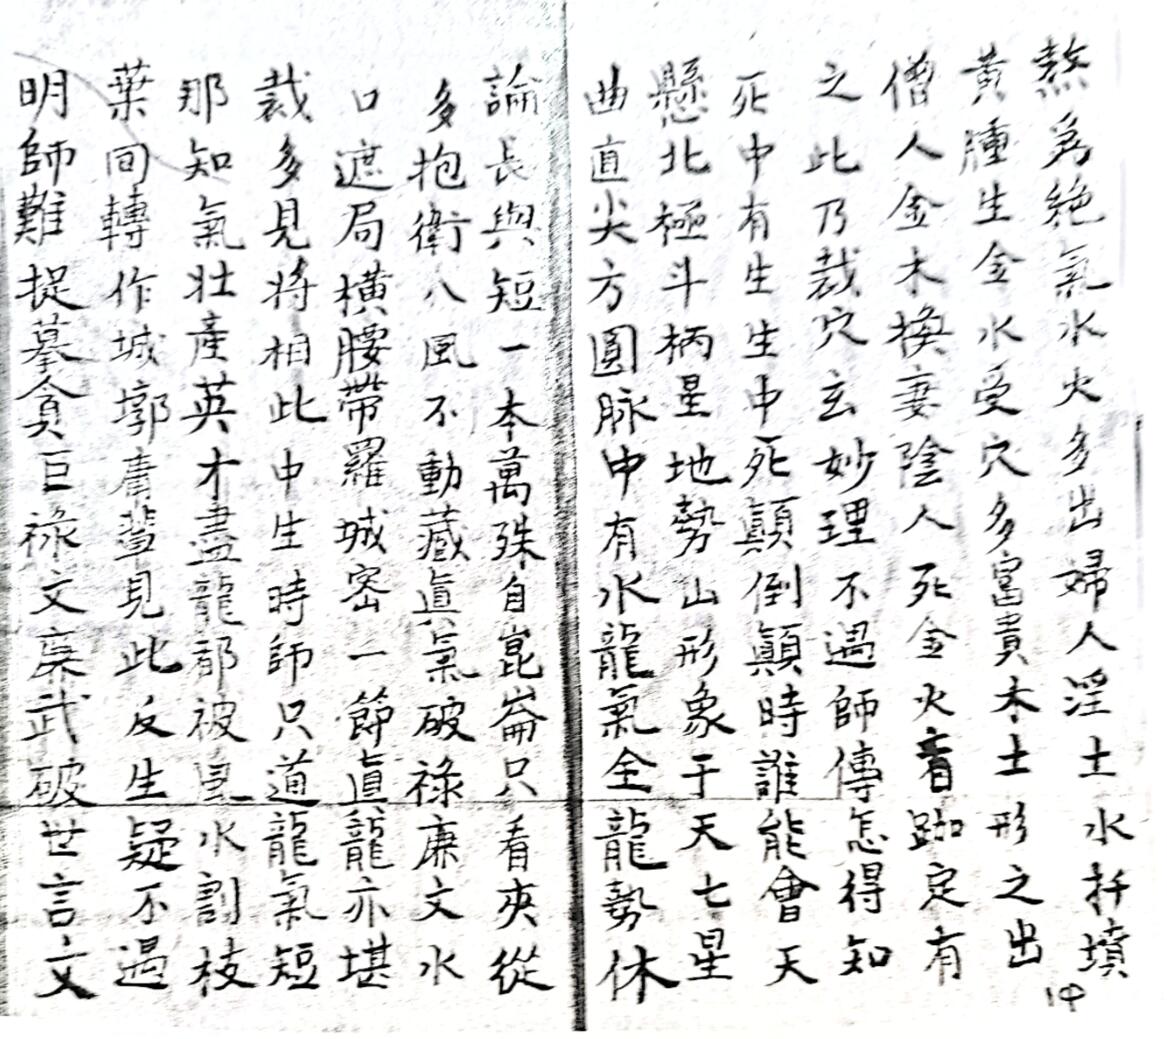 熬為絕氣水火多出婦人淫土水扦墳
黃腫生金水受穴多富貴木土形之出
僧人金木換妻陰人死金火音跏定有
之此乃裁穴玄妙理不過師傳怎得知
死中有生生中死顛倒顛時誰能會天
懸北極斗柄星地勢山形象于天七星
曲直尖方圓脉中有水龍氣全龍勢休
論長與短一本萬殊自崑崙只看夾從
多抱衛八風不動藏真氣破祿廉文水
口遮局橫腰帶羅城密一節真龍亦堪
裁多見將相此中生時師只道龍氣短
那知氣壯產英才盡龍都被風水割枝
葉回轉作城郭庸輩見此反生疑不遇
明師難捉摹貪巨祿文廉武破世言文
14